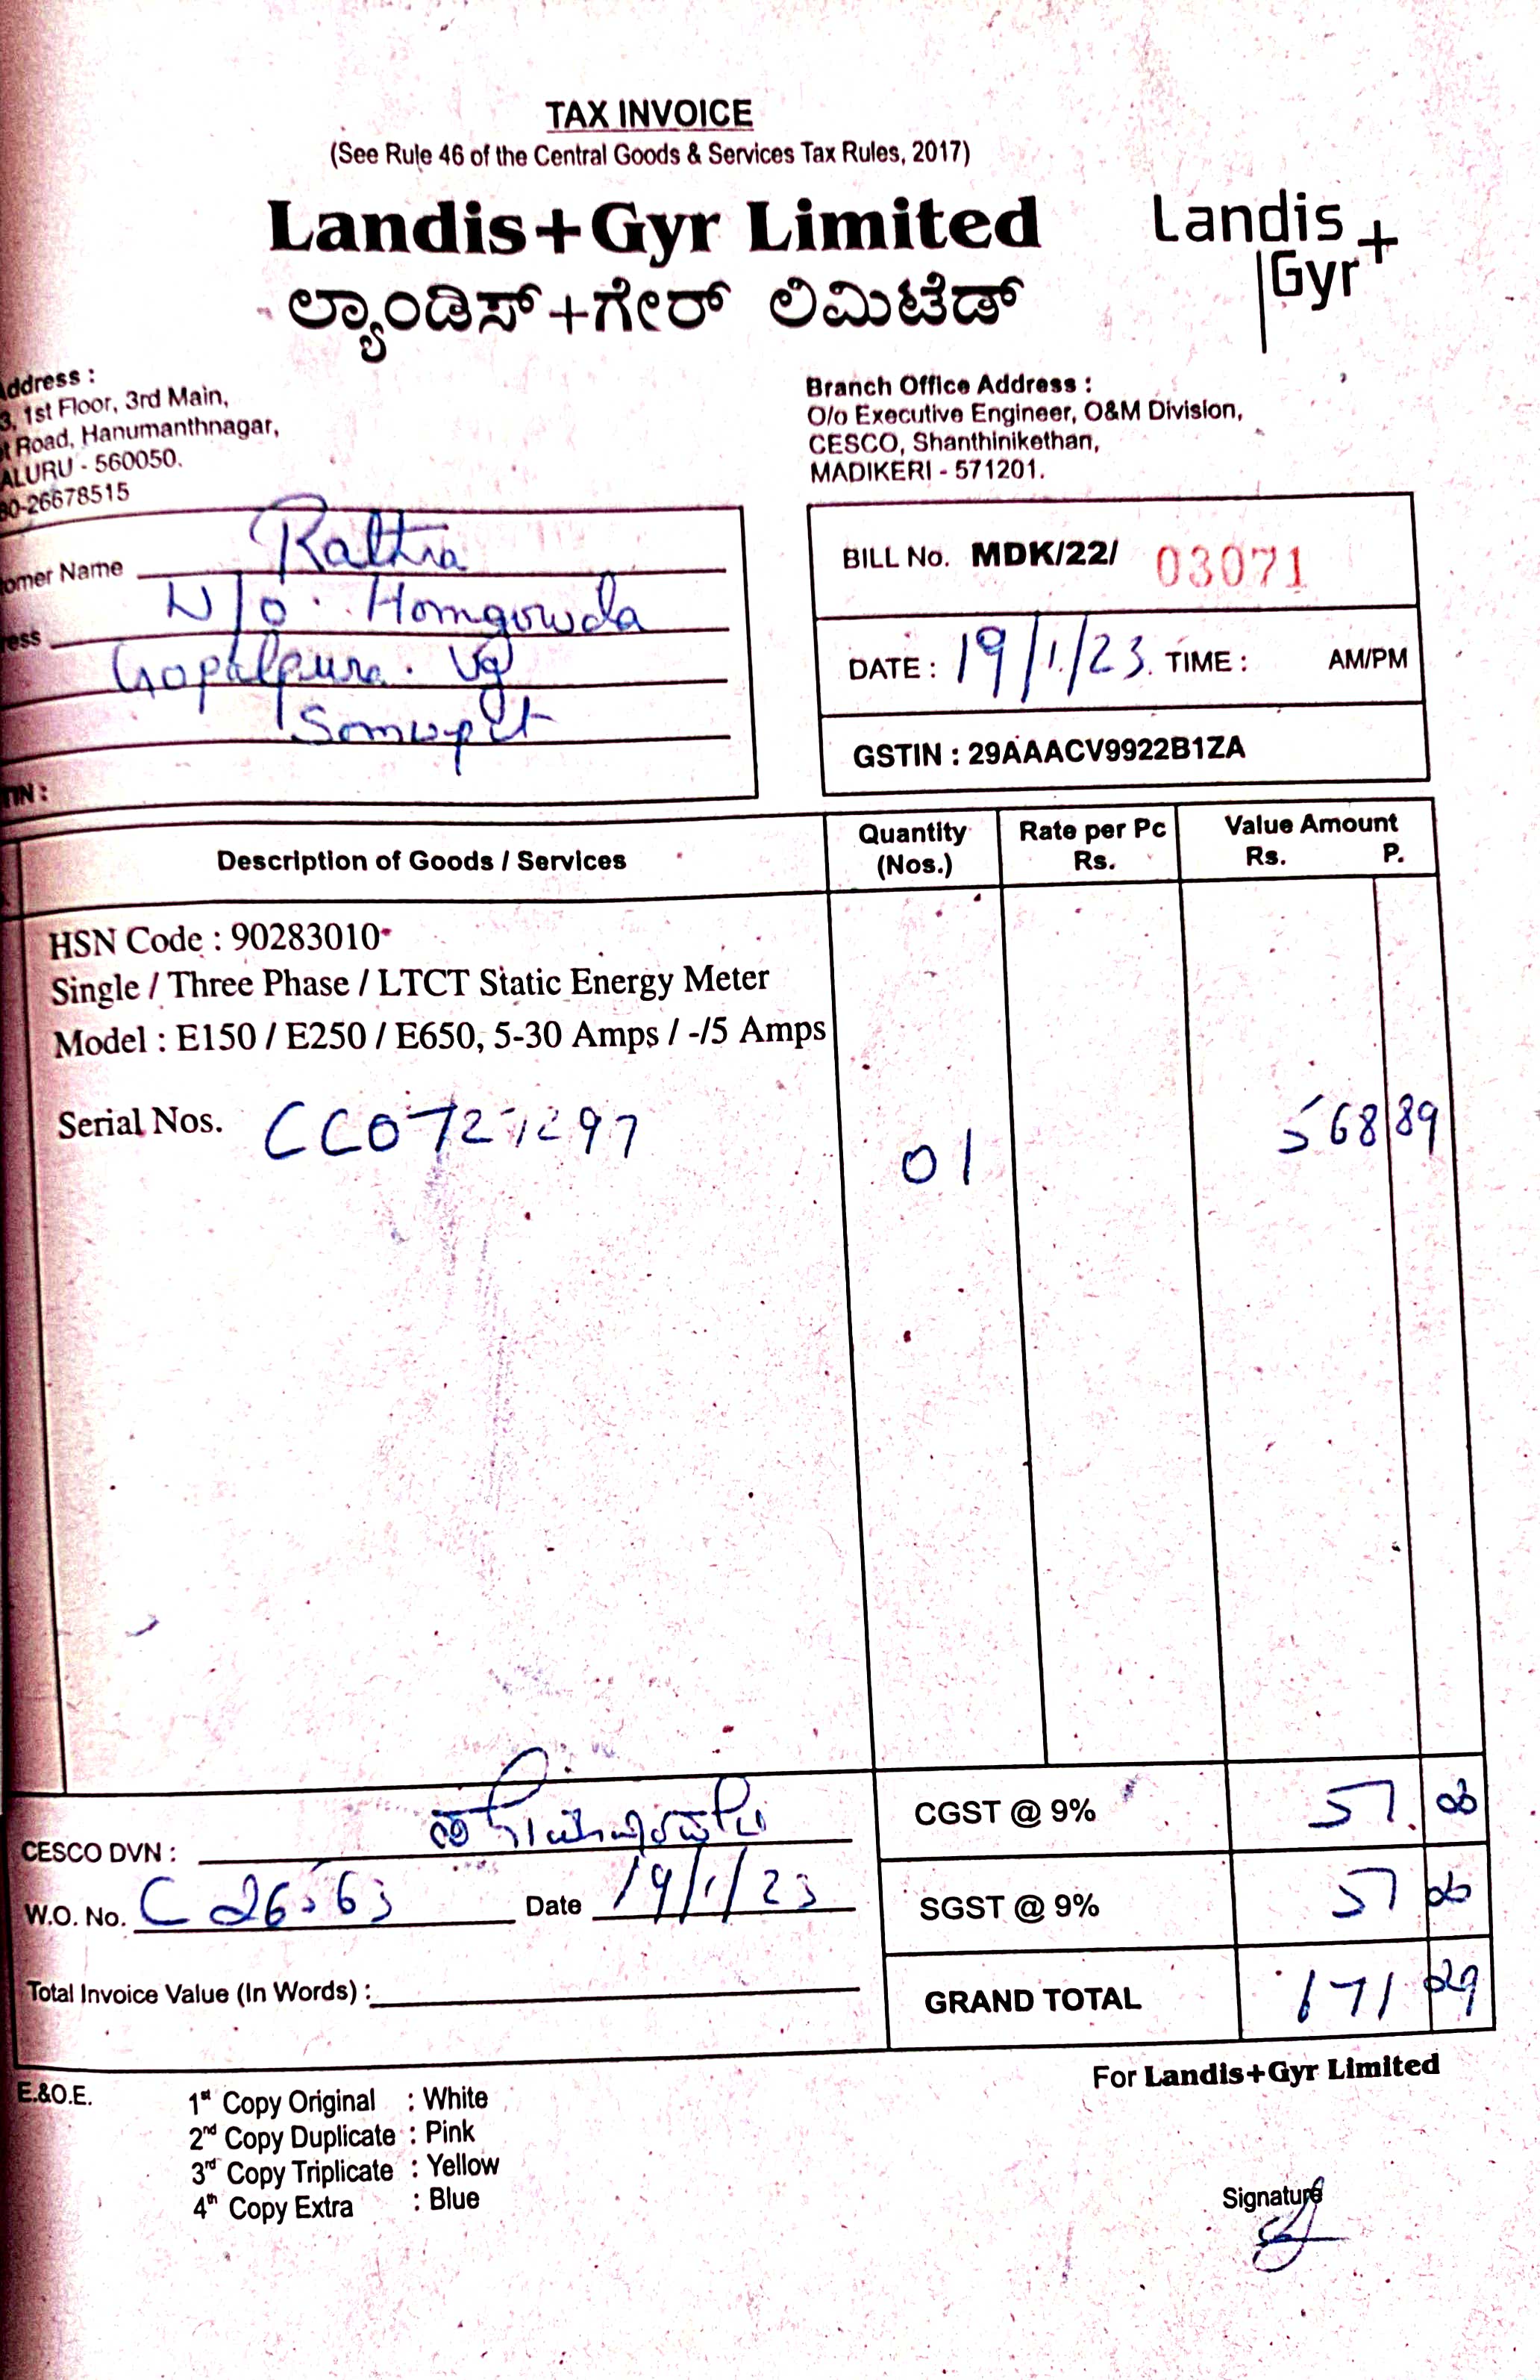 TAX INVOICE
(See Rule 46 of the Central Goods & Services Tax Rules, 2017)
Landis+Gyr Limited
Landis+
Gyr
ಲ್ಯಾಂಡಿಸ್+ಗೇರ್ ಲಿಮಿಟೆಡ್
Address :
3, 1st Floor, 3rd Main,
t Road, Hanumanthnagar,
ALURU - 560050.
80-26678515
Branch Office Address :
O/o Executive Engineer, O&M Division,
CESCO, Shanthinikethan,
MADIKERI - 571201.
omer Name Rathna
ress W/o. Homgowda
Gopalpura. Vg
Somwpet
TIN :
BILL No. MDK/22/ 03071
DATE : 19/1/23. TIME : AM/PM
GSTIN : 29AAACV9922B1ZA
Description of Goods / Services Quantity (Nos.) Rate per Pc Rs. Value Amount Rs. P.
HSN Code : 90283010
Single / Three Phase / LTCT Static Energy Meter
Model : E150 / E250 / E650, 5-30 Amps / -/5 Amps
Serial Nos. 01 568 89
CESCO DVN :
CGST @ 9% 57.
W.O. No. Date 19/1/23
SGST @ 9% 57
Total Invoice Value (In Words) :
GRAND TOTAL 171
E.&O.E.
1st Copy Original : White
2nd Copy Duplicate : Pink
3rd Copy Triplicate : Yellow
4th Copy Extra : Blue
For Landis+Gyr Limited
Signature